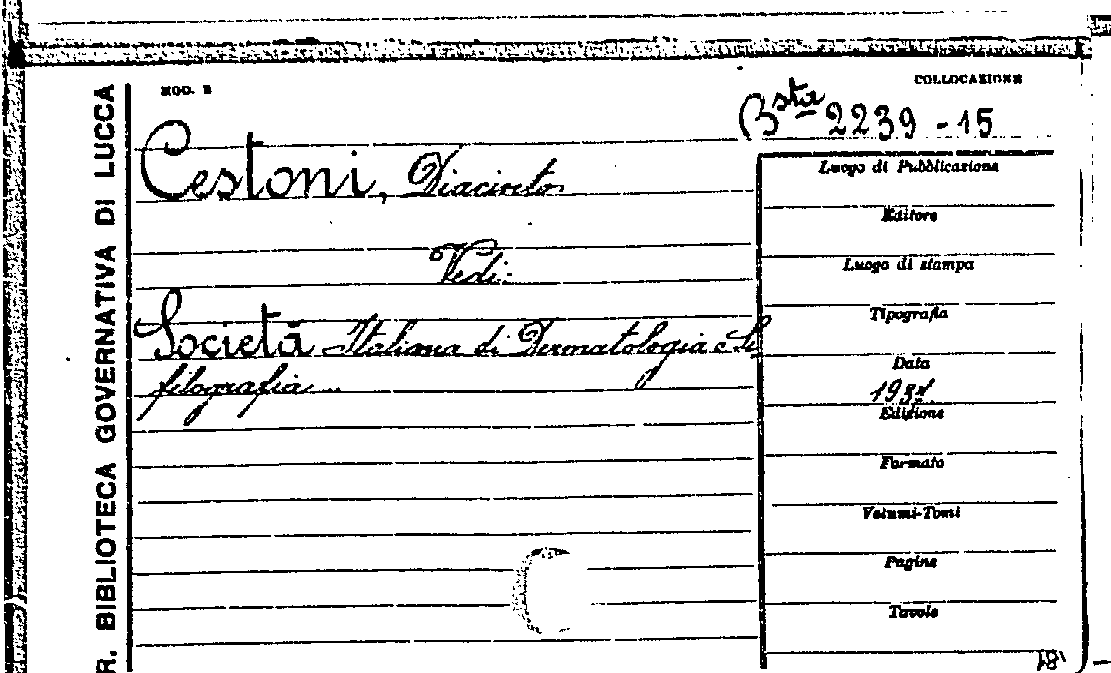 MOD. B
COLLOCAZIONE
Bsta 2239 - 15
R. BIBLIOTECA GOVERNATIVA DI LUCCA
Cestoni, Diacinto
Vedi:
Società Italiana di Dermatologia e Si
filografia...
Luogo di Pubblicazione
Editore
Luogo di stampa
Tipografia
Data
Edizione
Formato
Volumi-Tomi
Pagine
Tavole